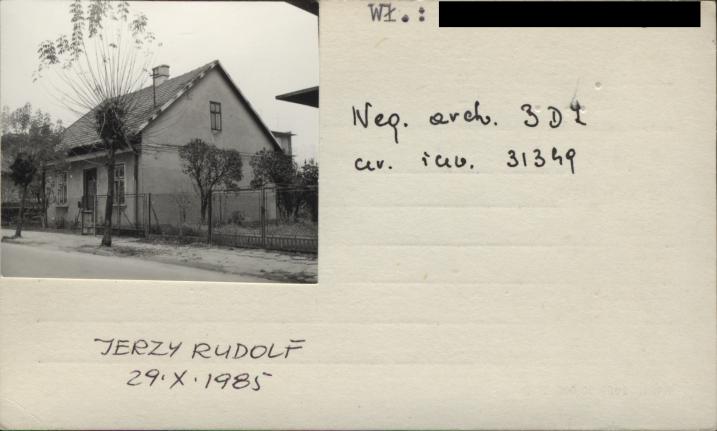 WŁ.:
Neg. arch. 3D2
nr. inw. 31349
JERZY RUDOLF
29.X.1985